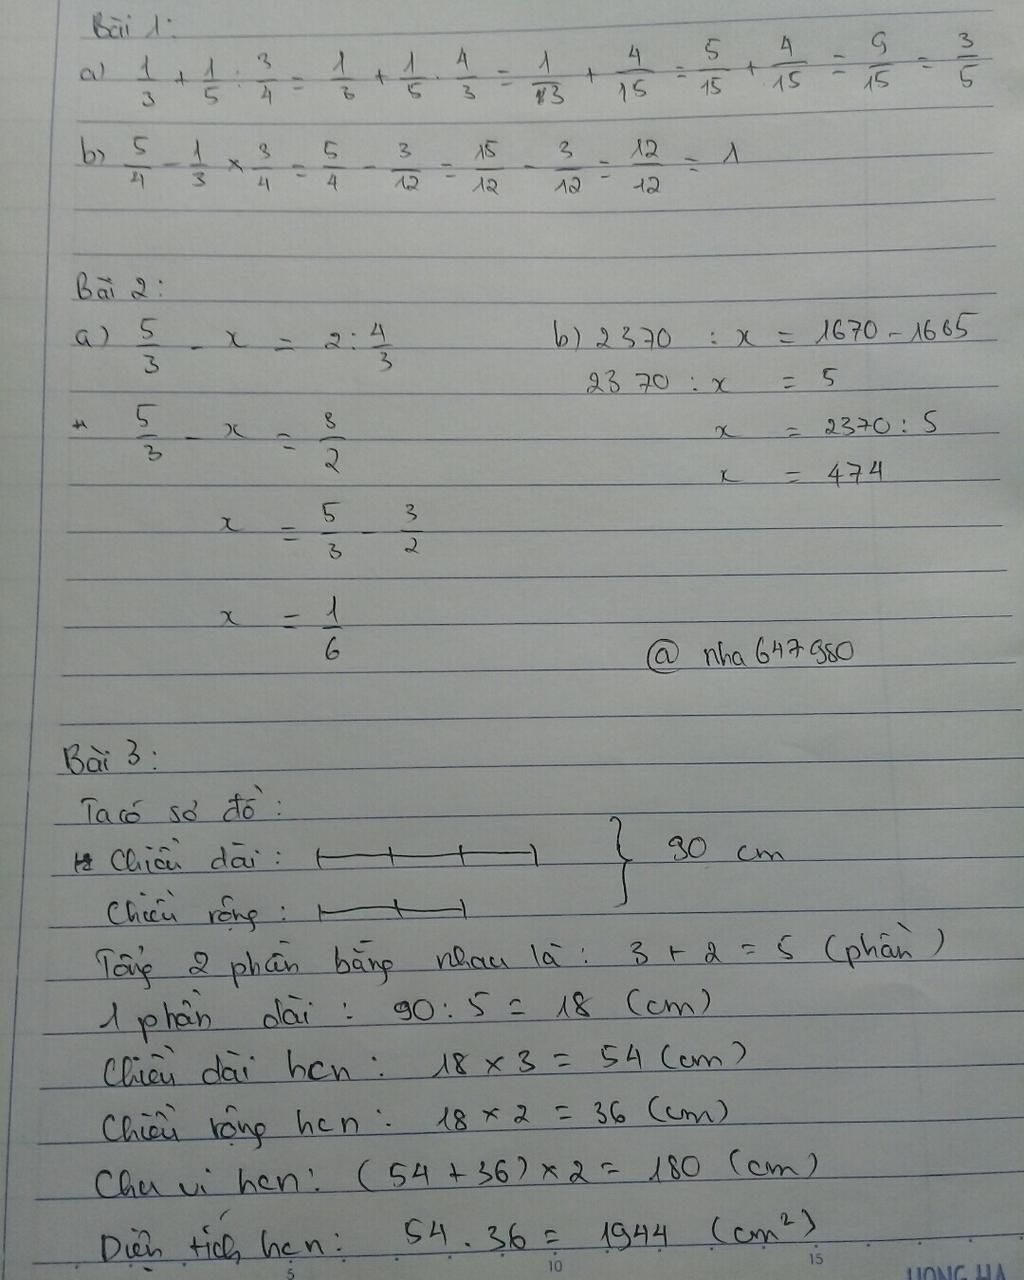 Bài 1:
a) 1/3 + 1/5 : 3/4 = 1/3 + 1/5 . 4/3 = 1/3 + 4/15 = 5/15 + 4/15 = 9/15 = 3/5
b) 5/4 - 1/3 × 3/4 = 5/4 - 3/12 = 15/12 - 3/12 = 12/12 = 1
Bài 2:
a) 5/3 - x = 2 : 4/3
b) 2370 : x = 1670 - 1665
2370 : x = 5
5/3 - x = 3/2
x = 2370 : 5
x = 474
x = 5/3 - 3/2
x = 1/6
@ nha647980
Bài 3:
Ta có sơ đồ:
Chiều dài:
90 cm
Chiều rộng:
Tổng 2 phần bằng nhau là: 3 + 2 = 5 (phần)
1 phần dài: 90 : 5 = 18 (cm)
Chiều dài hcn: 18 × 3 = 54 (cm)
Chiều rộng hcn: 18 × 2 = 36 (cm)
Chu vi hcn: (54 + 36) × 2 = 180 (cm)
Diện tích hcn: 54 . 36 = 1944 (cm²)
5 10 15
HONG HA